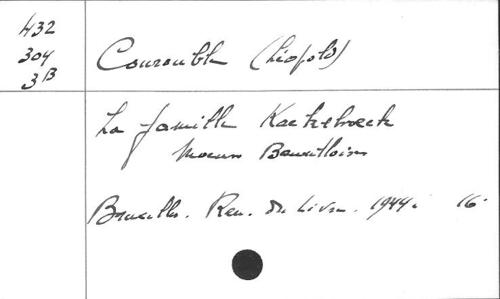 432
304
3B
Courouble (Léopold)
La famille Kaekebroeck
Moeurs Bruxelloises
Bruxelles. Ren. du Livre. 1944. 16°